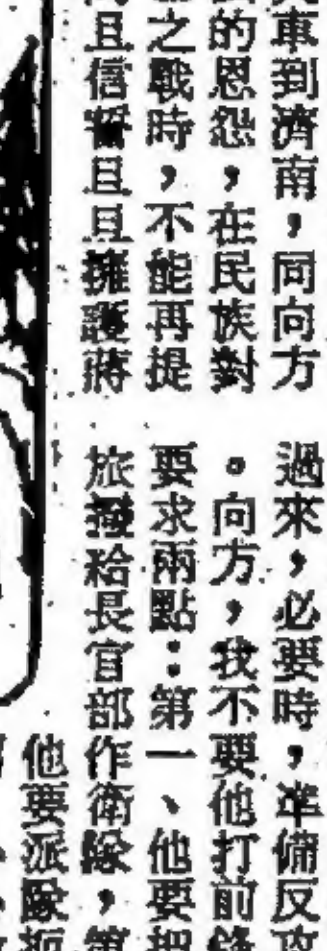 車到濟南,同向方
的恩怨,在民族對
之戰時,不能再提
且信誓旦旦擁護蔣
過來,必要時,準備反攻
。向方,我不要他打前鋒
要求兩點:第一、他要把
旅撥給長官部作衛隊,第
他要派隊扼